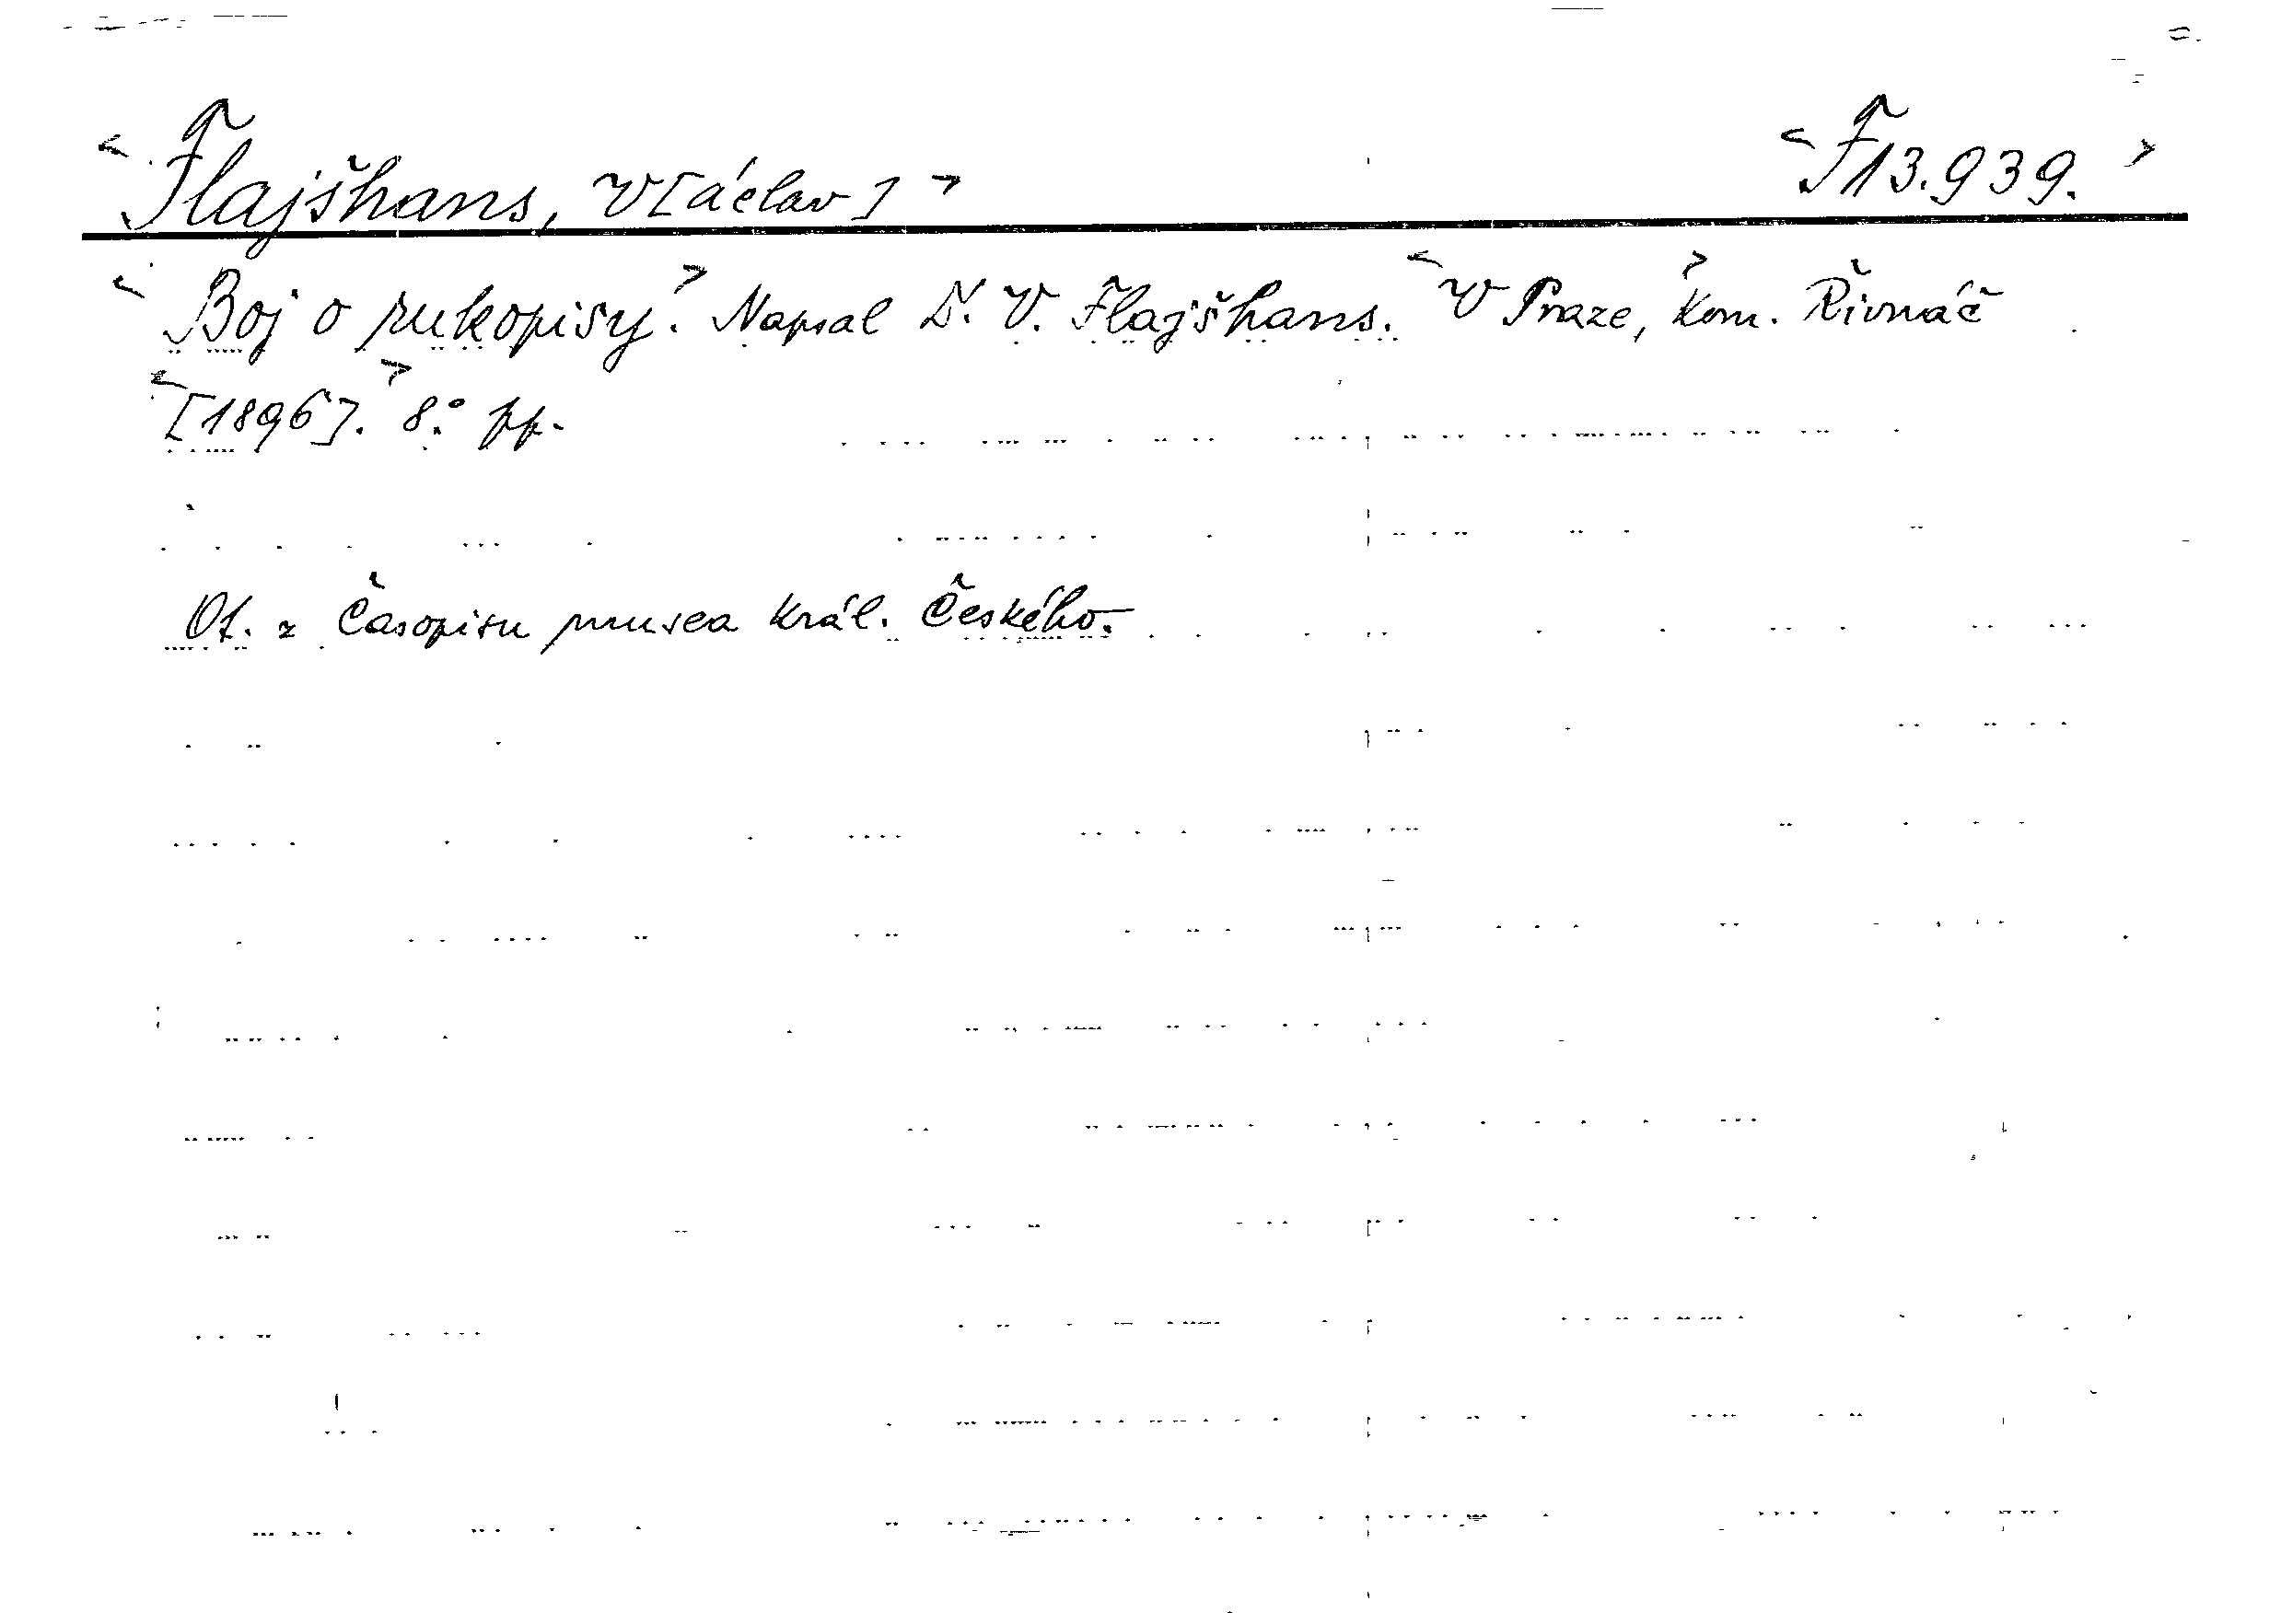 <Flajšhans, V[áclav]> <F 13.939.>
<Boj o rukopisy.> Napsal Dr. V. Flajšhans. <V Praze,> kom. Řivnáč
<[1896].> 8.° pp.
Ot. z Časopisu musea král. Českého.